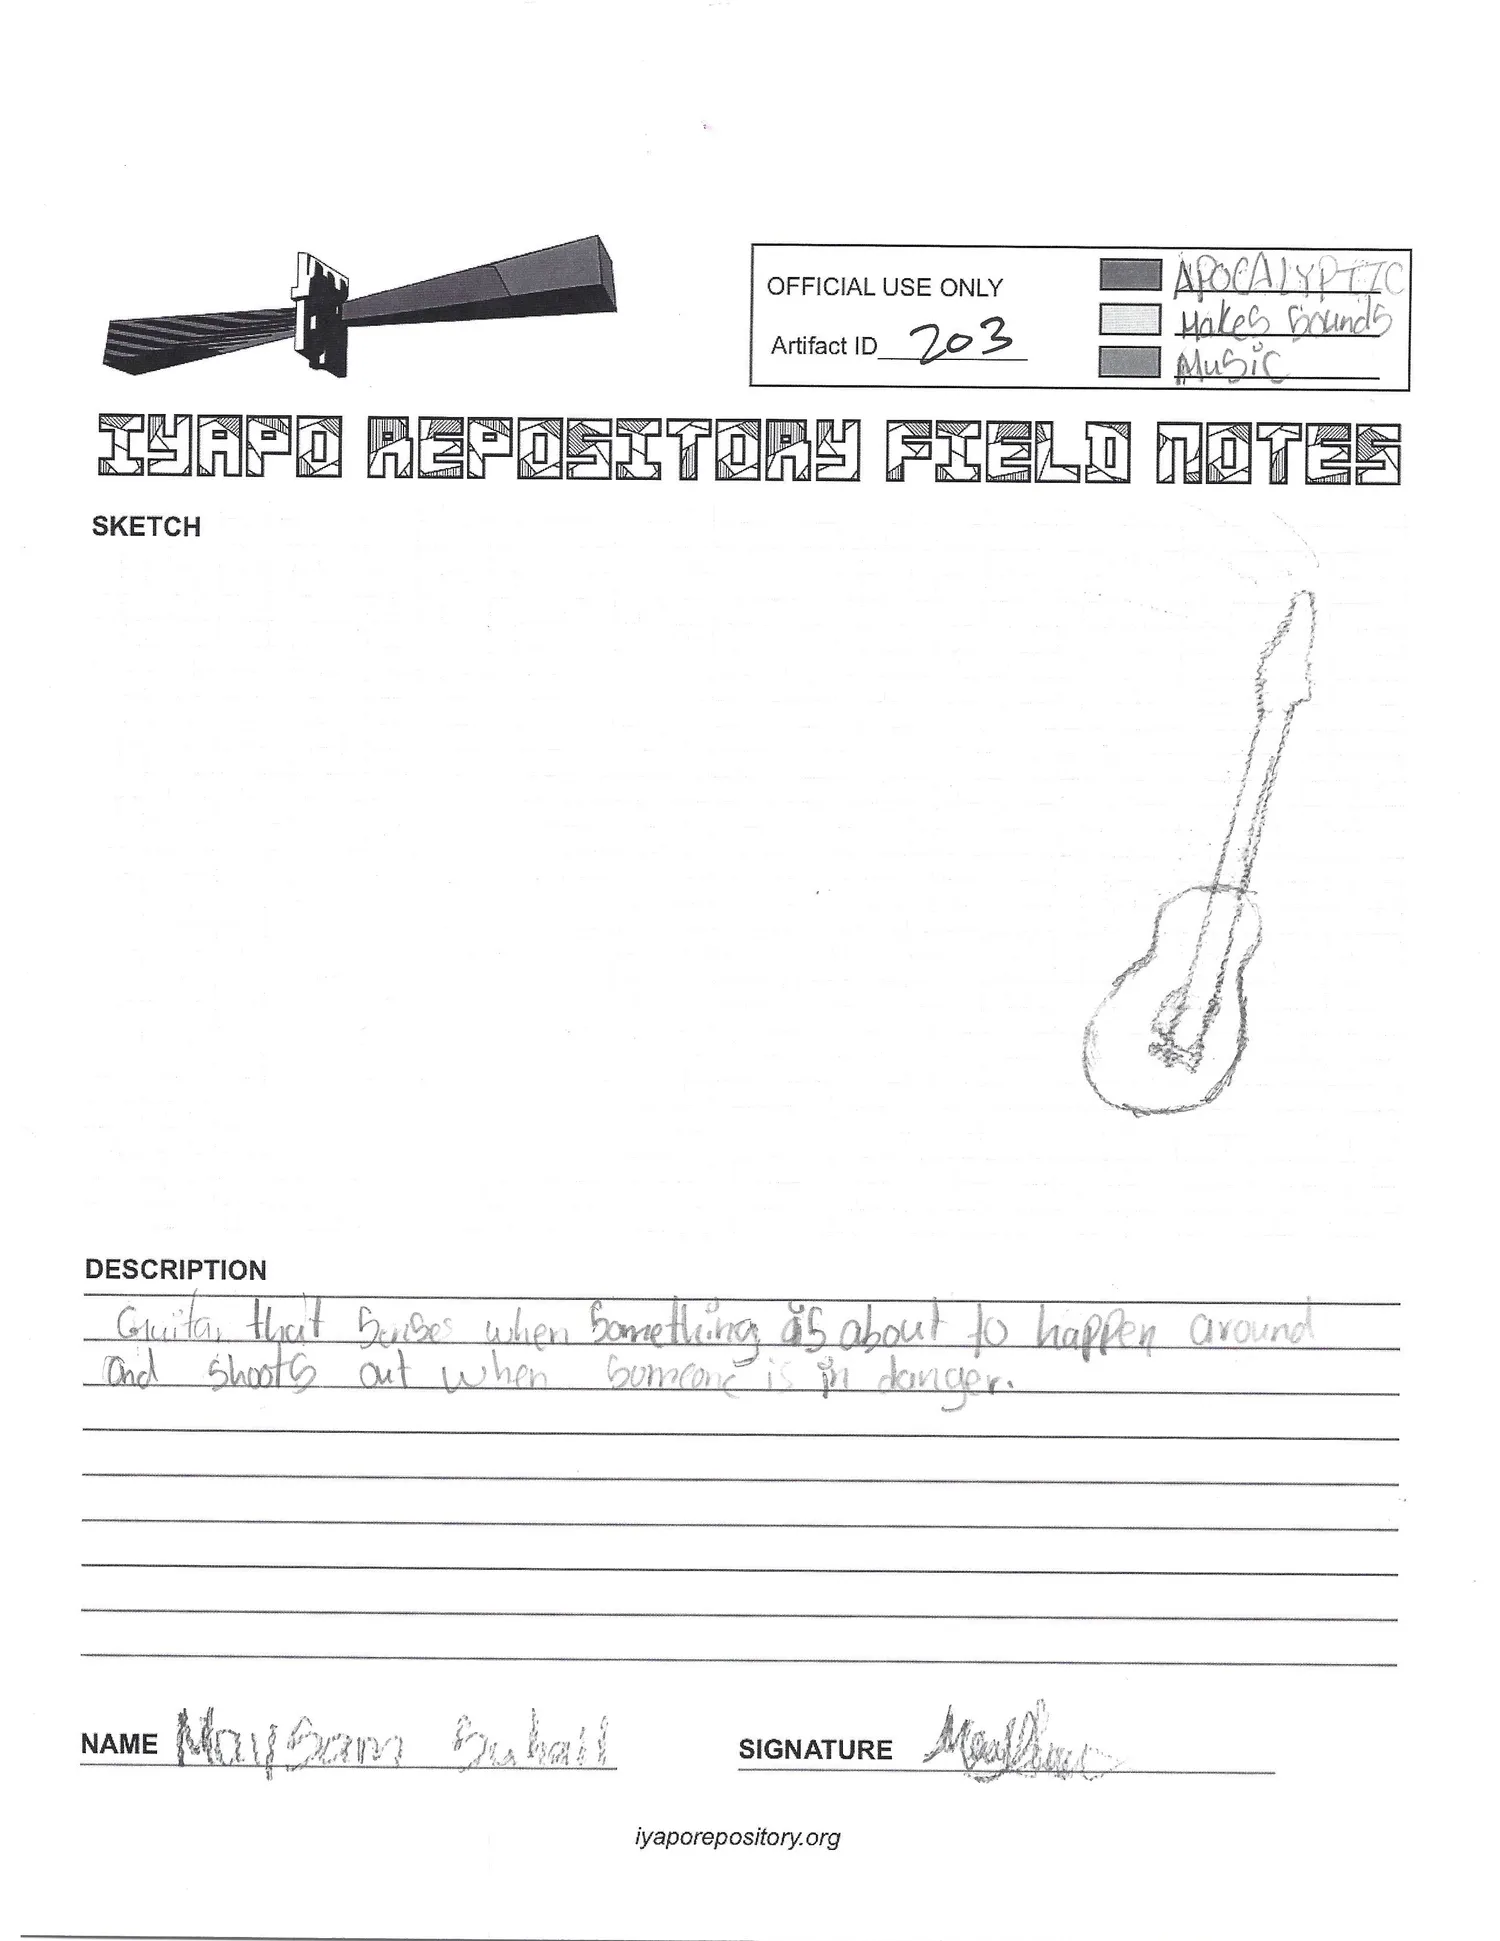 OFFICIAL USE ONLY
Artifact ID 203
APOCALYPTIC
Makes Sounds
Music
IYAPO REPOSITORY FIELD NOTES
SKETCH
DESCRIPTION
Guitar that senses when something is about to happen around
and shoots out when someone is in danger.
NAME Maysam Suhail
SIGNATURE
iyaporepository.org